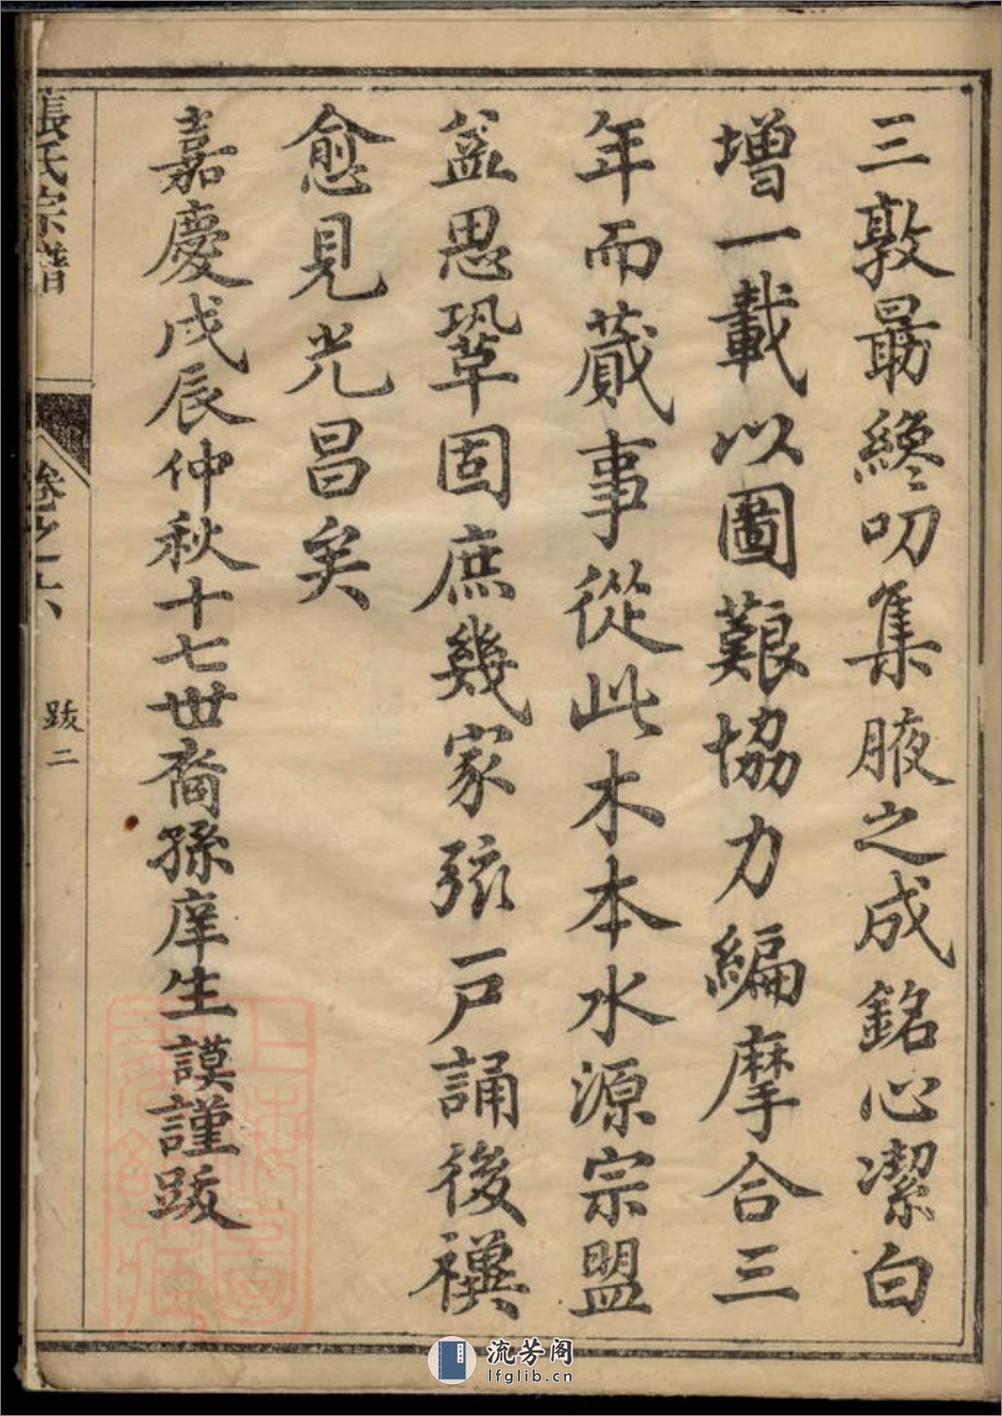 三敦最終叨集腋之成銘心潔白
增一載以圖艱協力編摩合三
年而蕆事從此木本水源宗盟
益思鞏固庶幾家弦戶誦後禩
愈見光昌矣
嘉慶戊辰仲秋十七世裔孫庠生謨謹跋
張氏宗譜
卷之六
跋二
流芳阁
lfglib.cn